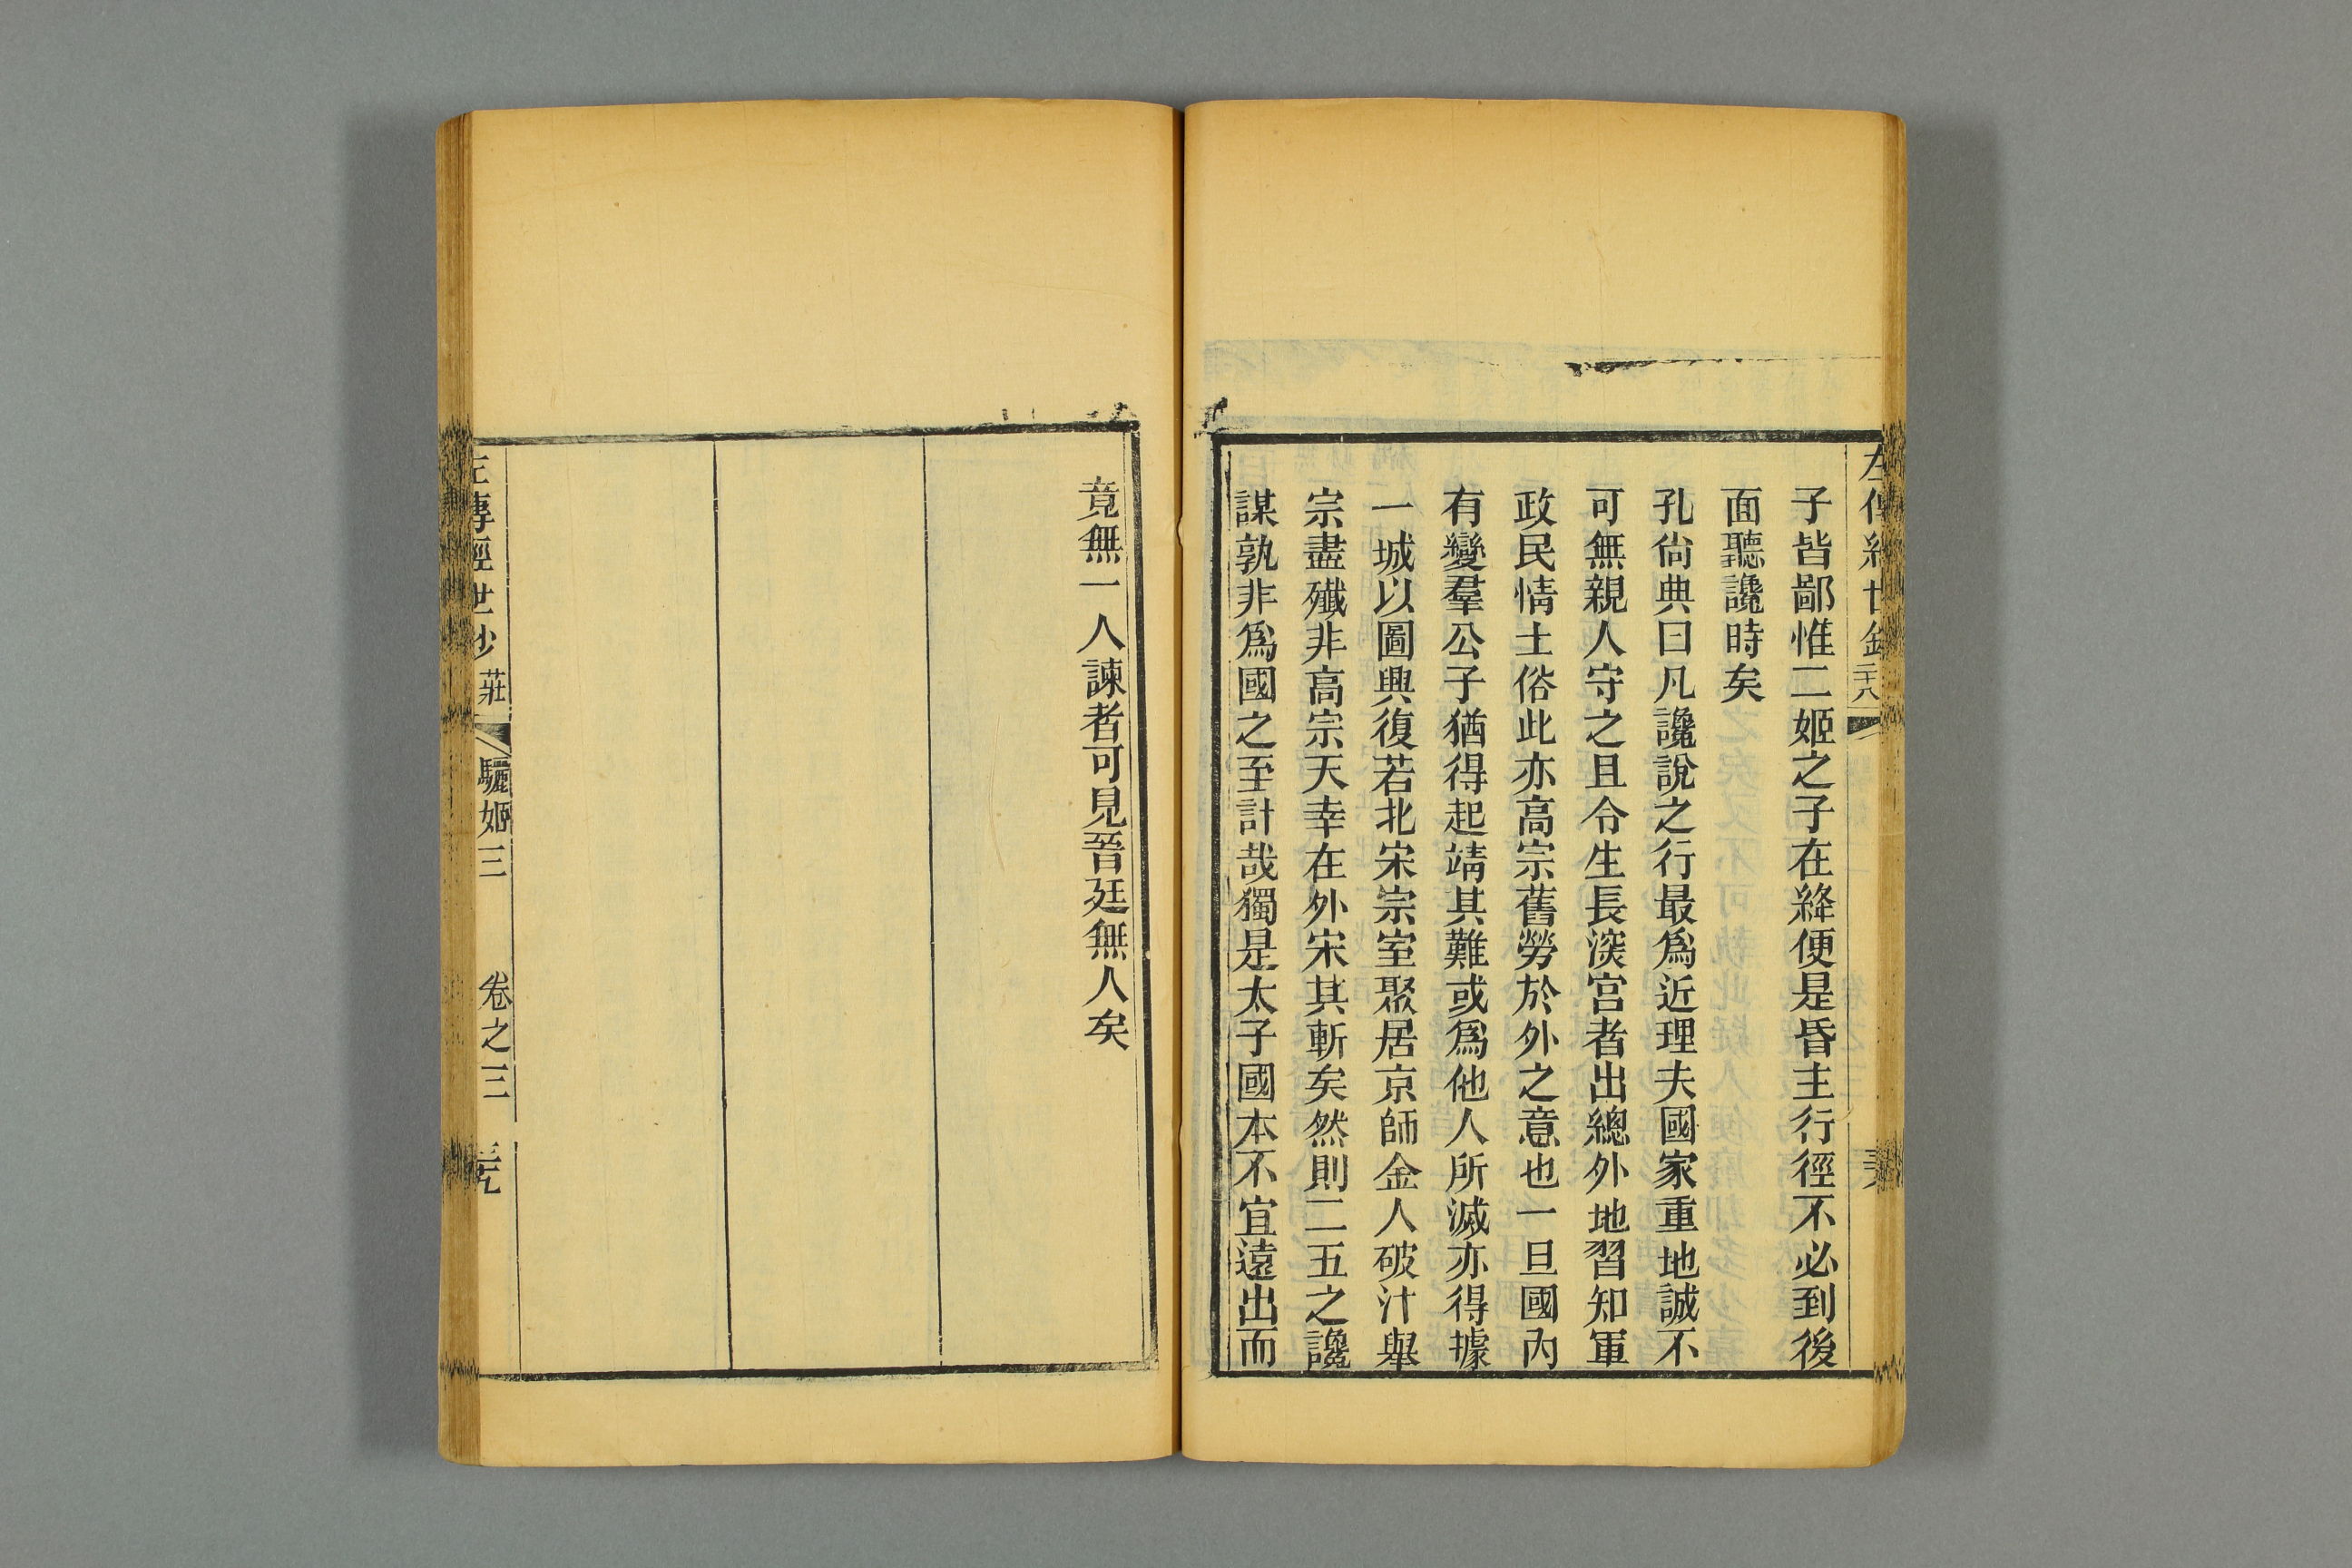 子皆鄙惟二姬之子在絳便是昏主行徑不必到後
面聽讒時矣
孔尙典曰凡讒說之行最爲近理夫國家重地誠不
可無親人守之且令生長深宮者出總外地習知軍
政民情土俗此亦高宗舊勞於外之意也一旦國內
有變羣公子猶得起靖其難或爲他人所滅亦得據
一城以圖興復若北宋宗室聚居京師金人破汁舉
宗盡殲非高宗天幸在外宋其斬矣然則二五之讒
謀孰非爲國之至計哉獨是太子國本不宜遠出而
竟無一人諫者可見晉廷無人矣
左傳經世鈔 莊 驪姬三 卷之三